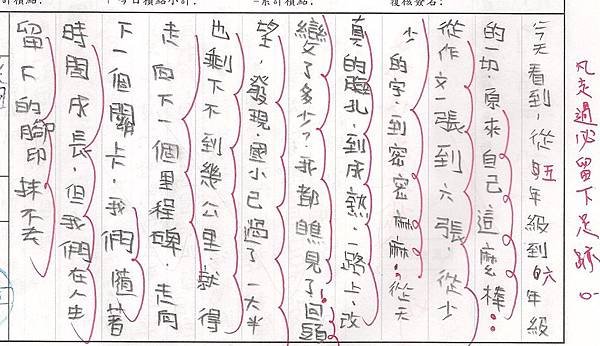 今日積點小計:
累計積點:
複核簽名:
凡走過必留下足跡。
今天看到,從五年級到六年級
的一切,原來自己這麼棒:
從作文一張到六張,從少
少的字,到密密麻麻:從天
真的臉孔,到成熟,一路上,改
變了多少?我都瞧見了!回頭
望,發現國小已過了一大半
也剩下不到幾公里,就得
走向下一個里程碑,走向
下一個關卡,我們隨著
時間成長,但我們在人生
留下的腳印抹不去